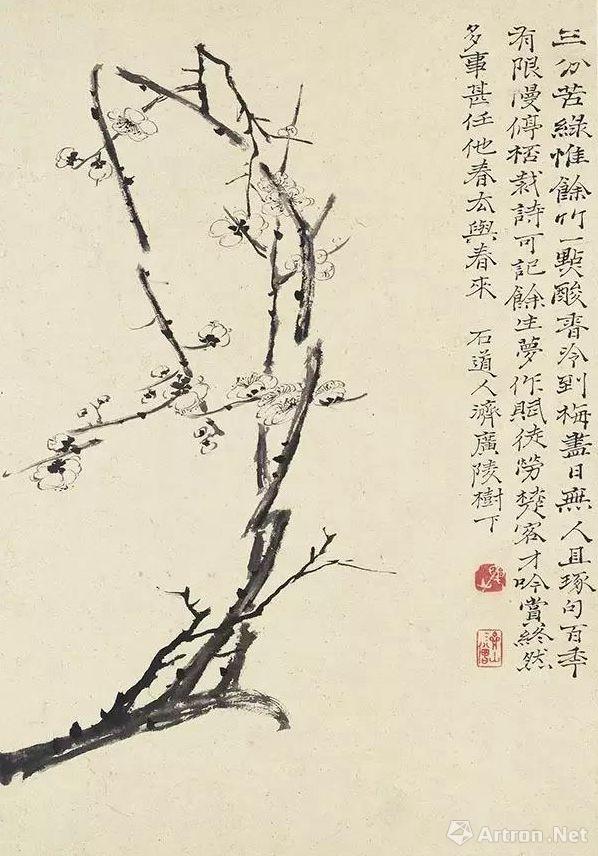 三分苦綠惟餘竹一點酸香冷到梅盡日無人且琢句百年
有限慢停桮裁詩可記餘生夢作賦徒勞楚客才吟賞終然
多事甚任他春去與春來 石道人濟廣陵樹下
Artron.Net